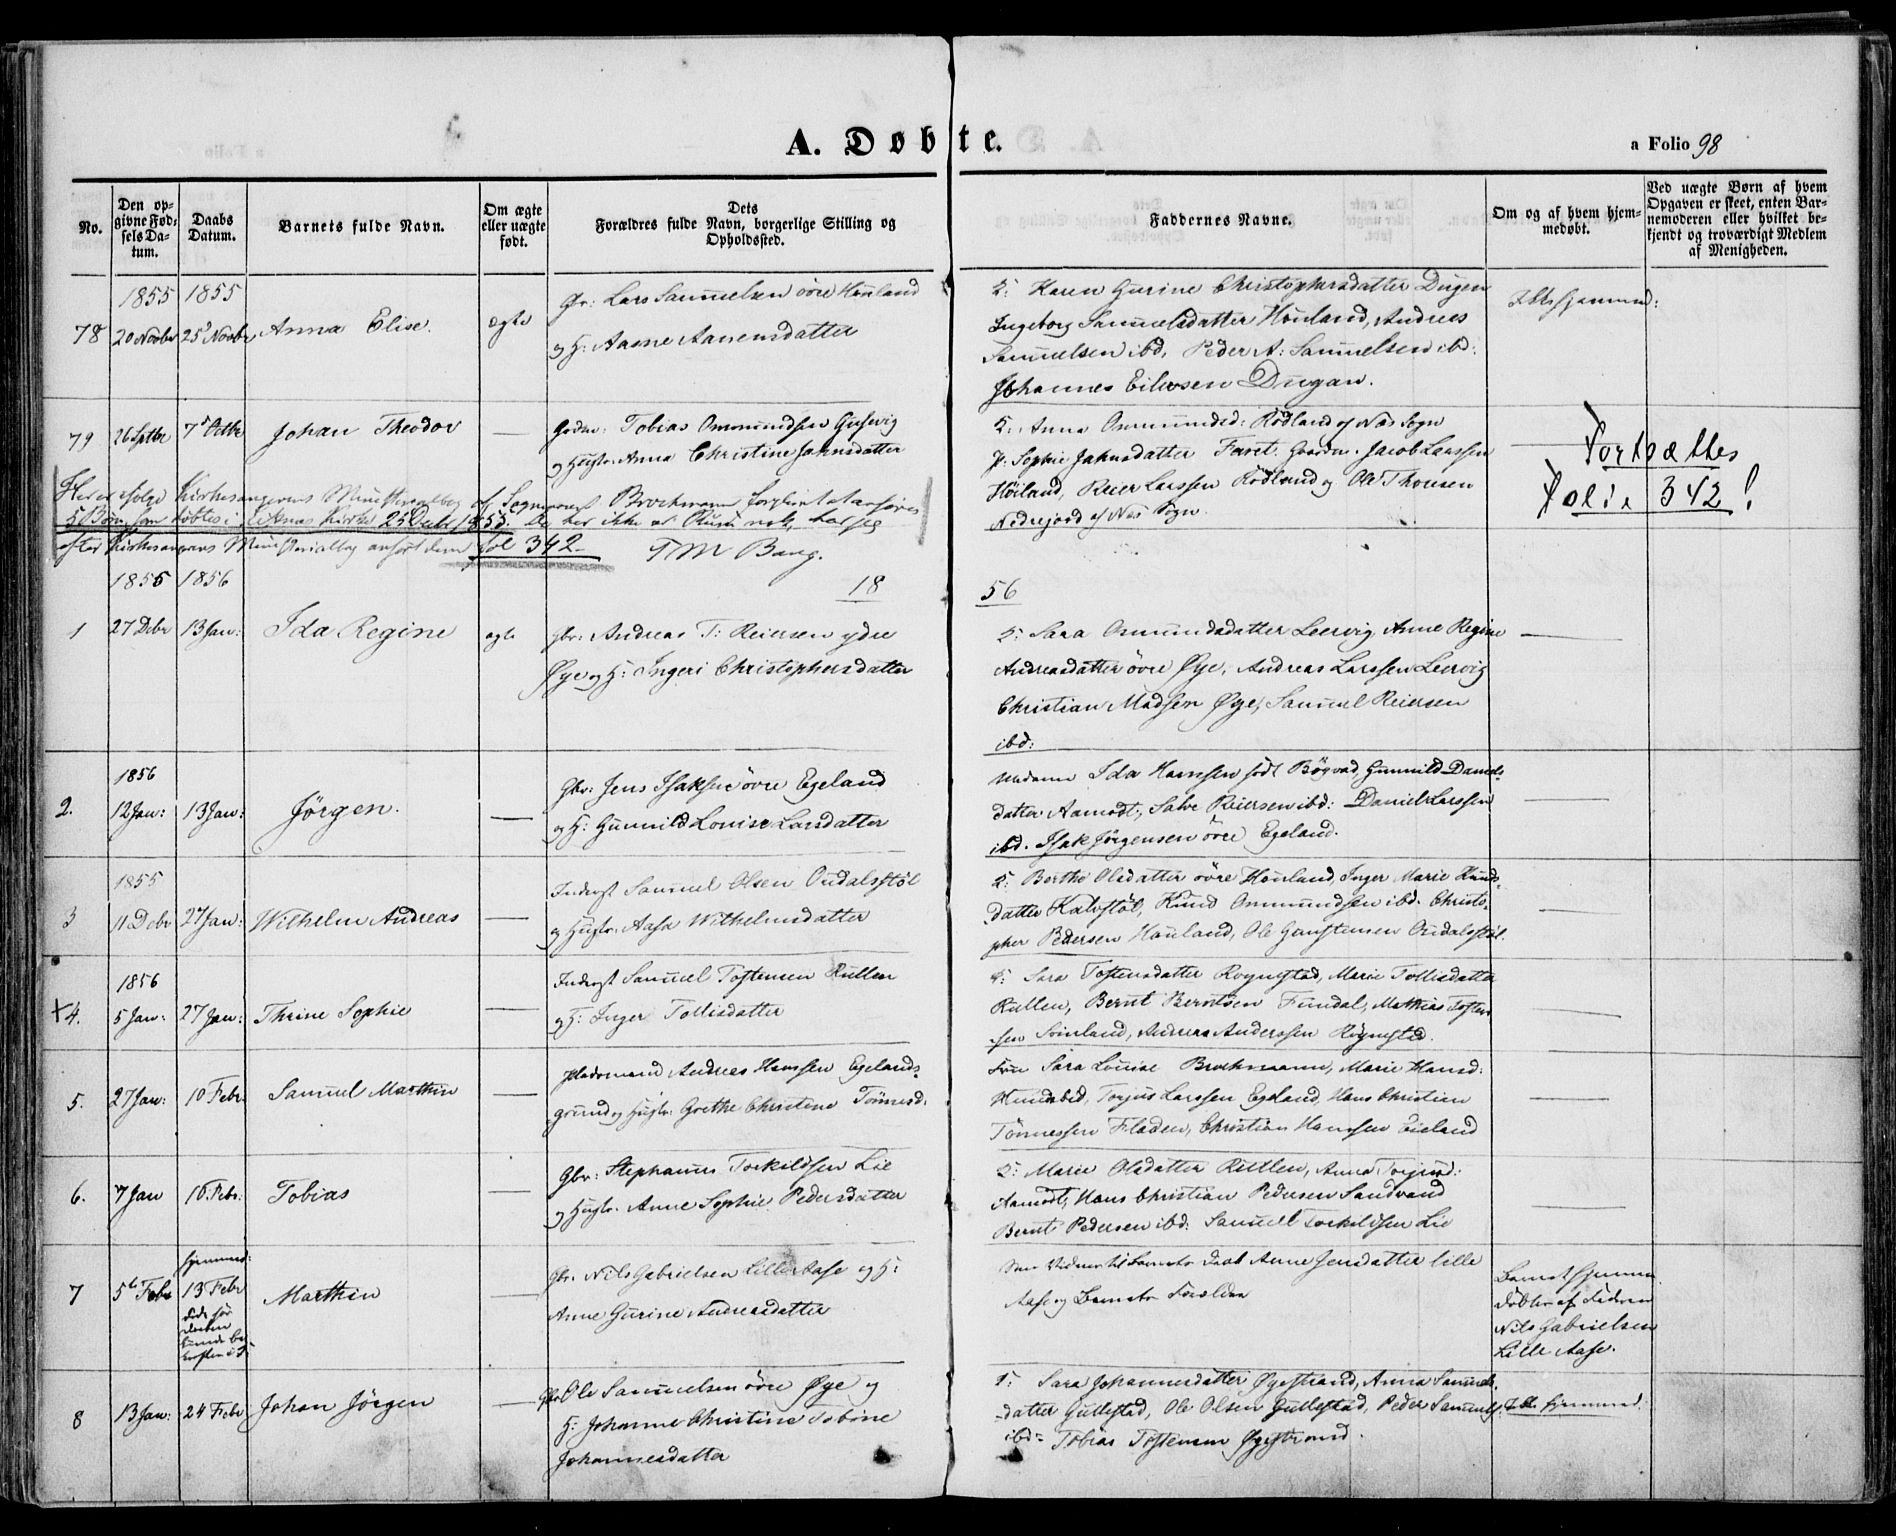 A. Døbte.
a Folio 98
No.
Den op-
givne Fød-
sels Da-
tum.
Daabs
Datum.
Barnets fulde Navn.
Om ægte
eller uægte
født.
Dets
Forældres fulde Navn, borgerlige Stilling og
Opholdssted.
Faddernes Navne.
Om og af hvem hjem-
medøbt.
Ved uægte Børn af hvem
Opgaven er skeet, enten Bar-
nemoderen eller hvilket be-
kjendt og troværdigt Medlem
af Menigheden.
1855 1855
78 20 Novbr 25 Novbr Anna Elise. ægte
Gbr: Lars Samuelsen övre Houland
og H: Aasne Aanensdatter
Karen Gurine Christophersdatter Dugan
Ingeborg Samuelsdatter Houland, Andreas
Samuelsen ibd, Peder A: Samuelsen ibd:
Johannes Eilersen Dugan.
79 26 Septbr 7 Octbr Johan Theodor —
Tobias Ommundsen
og Hustr. Anna Christine Jahnsdatter
Anna Ommundsd: Rödland af Næs Sogn
Sophie Jahnsdatter Jacob Larssen
Höiland, Reier Larssen Rödland og Ole Thorsen
Nedrejord af Næs Sogn.
Fortsættes
Folie 342!
Kirkesangerens Ministerialbog af Sogneprest Brochmann
5 Börn, som döbtes i Kirke 25 Decbr 1855. ikke
efter Kirkesangerens Ministerialbog anfört dem fol 342
T M Bang.
1855 1856
18 56
1 27 Debr 13 Jan: Ida Regine ægte
Gbr: Andreas T: Reiersen ydre
Øye og H: Ingeri Christophersdatter
Sara Osmundsdatter Leervig, Anne Regine
Andreasdatter övre Øye, Andreas Larssen Leervig
Christian Madsen Øye, Samuel Reiersen
ibd:
1856
2. 12 Jan: 13 Jan: Jörgen. —
Gbr: Jens Isaksen övre Egeland
og H: Gunnild Louise Larsdatter
Madame Ida Hanssen födt Bögvad, Gunnild Daniels-
datter Aamodt, Salve Reiersen ibd: Daniel Larssen
ibd. Isak Jörgensen övre Egeland.
1855
3 11 Debr 27 Jan: Wilhelm Andreas —
Inderst Samuel Olsen Oudalsstöl
og Hustr. Aasa Wilhelmsdatter
Berthe Olsdatter övre Houland, Inger Marie Knuds-
datter Kalvstöl, Knud Ommundsen ibd. Christo-
pher Pedersen Houland, Ole Gunstensen Oudalsstöl.
1856
+4. 5 Jan: 27 Jan: Thrine Sophie —
Inderst Samuel Tostensen Rullen
og H: Inger Tollisdatter
Sara Tostensdatter Roynestad, Marie Tollisdatter
Rullen, Bernt Berntsen Fundal, Mathias Tosten-
sen Svinland, Andreas Anderssen Röynestad.
5. 27 Jan: 10 Febr. Samuel Marthin —
Pladsmand Andreas Hanssen Egelands-
grund og Hustr. Grethe Christine Tönnesd.
Fru Sara Louise Brochmann, Marie Hansd:
Torjus Larssen Egeland, Hans Christian
Tönnessen Fladen, Christian Hanssen Eieland
6. 7 Jan 10 Febr. Tobias —
Gbr: Stephanus Torkildsen Lie
og Hustr. Anne Sophie Pedersdatter
Marie Olsdatter Rullen, Anna Torjusd:
Aamodt, Hans Christian Pedersen Sandvand
Bernt Pedersen ibd: Samuel Torkildsen Lie
hjemmed:
7 5te Febr 13 Febr Marthin —
döde för
Gbr. Nils Gabrielsen Lille Aase og H:
Anne Gurine Andreasdatter
Vidner til Barnets Daab Anne Jensdatter lille
Aase og Barnets Forældre
Barnet hjemme
döbt af Faderen
Nils Gabrielsen
Lille Aase.
8 13 Jan: 24 Febr Johan Jörgen —
Gbr Ole Samuelsen övre Øye og
H: Johanne Christine Tobine
Johannesdatter
Sara Johannesdatter Øyestrand, Anna Samuels-
datter Gullestad, Ole Olsen Gullestad, Peder Samuels.
ibd. Tobias Tostensen Øyestrand.
hjemmed: